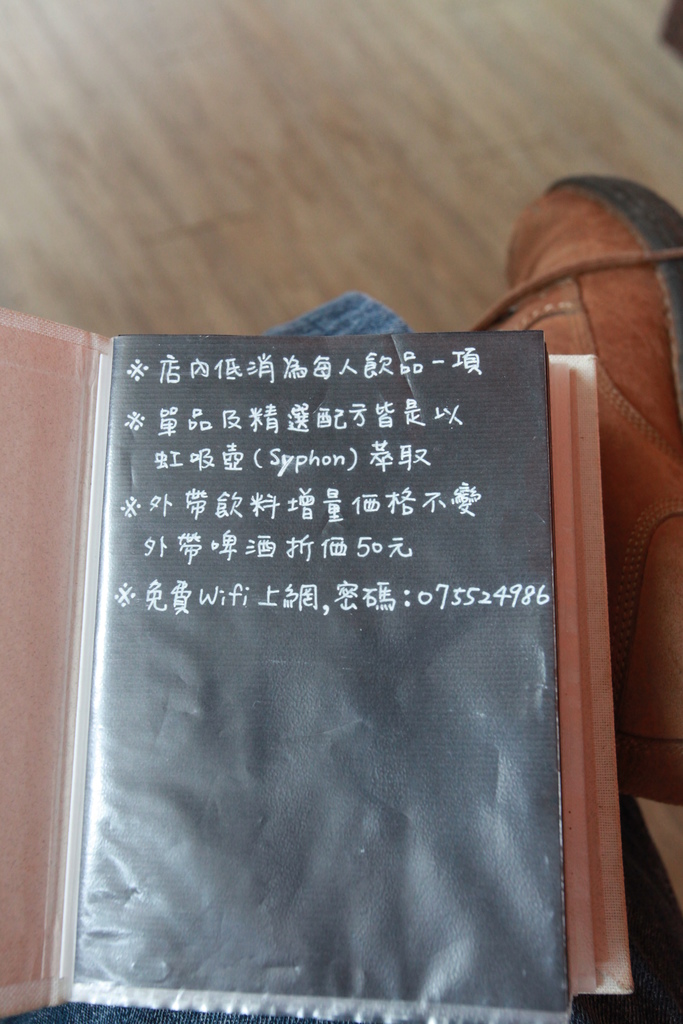 ※店內低消為每人飲品一項
※單品及精選配方皆是以
虹吸壺(Syphon)萃取
※外帶飲料增量価格不變
外帶啤酒折価50元
※免費Wifi上網,密碼:075524986